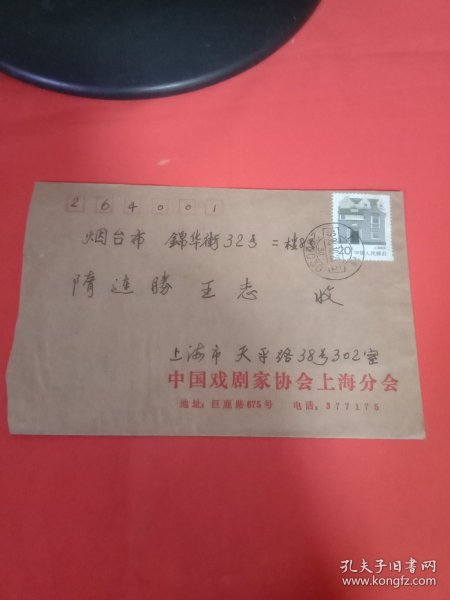 264001
烟台市 錦华街32号二楼8号
隋连勝 王志 收
20
中国人民邮政
上海市 天平路38号302室
中国戏剧家协会上海分会
地址：巨鹿路675号 电话：377175
孔夫子旧书网
www.kongfz.com